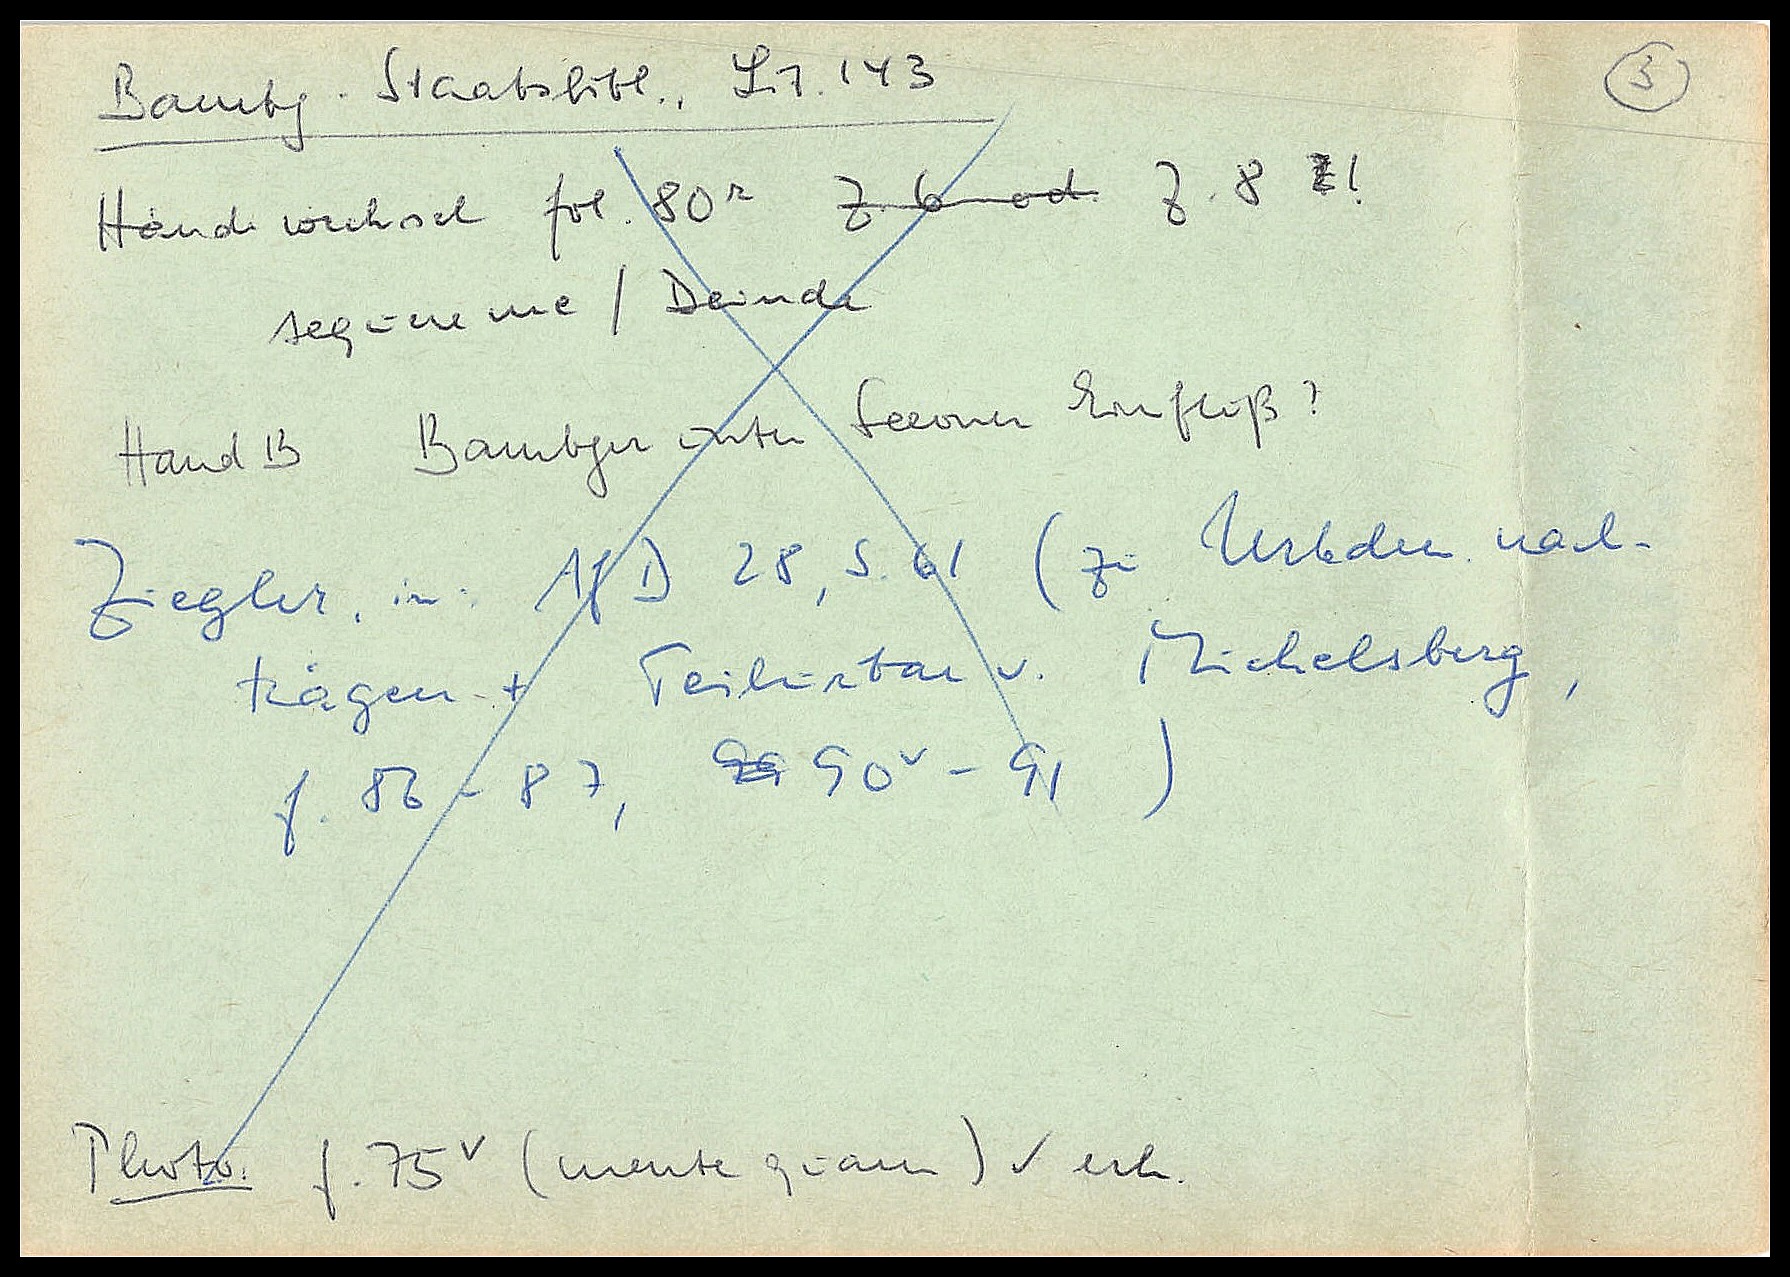 Bambg. Staatsbibl., Lit. 143
3
Handwechsel fol. 80r Z. 6 od. Z. 8 !
sequere me / Deinde
Hand B Bambger unter Seeoner Einfluß?
Ziegler, in: AfD 28, S. 61 (zu Urkden nach-
trägen + Teilurbar v. Michelsberg,
f. 86 - 87, 90v - 91 )
Photo: f. 75v (mente quam) ✓ erh.